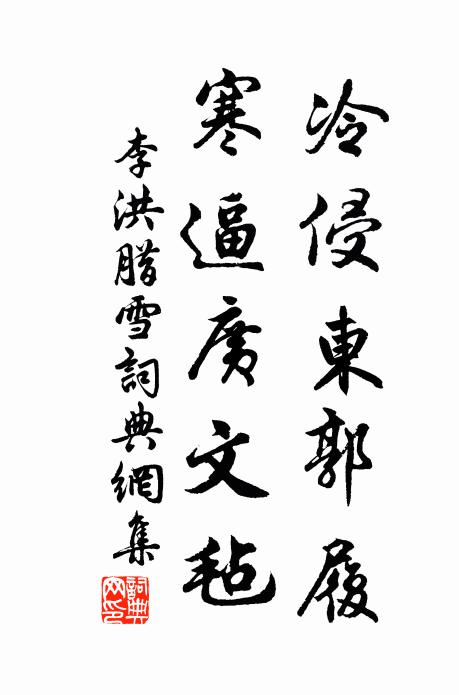 冷侵東郭履
寒逼廣文毡
李洪腊雪詞典網集
詞典網印